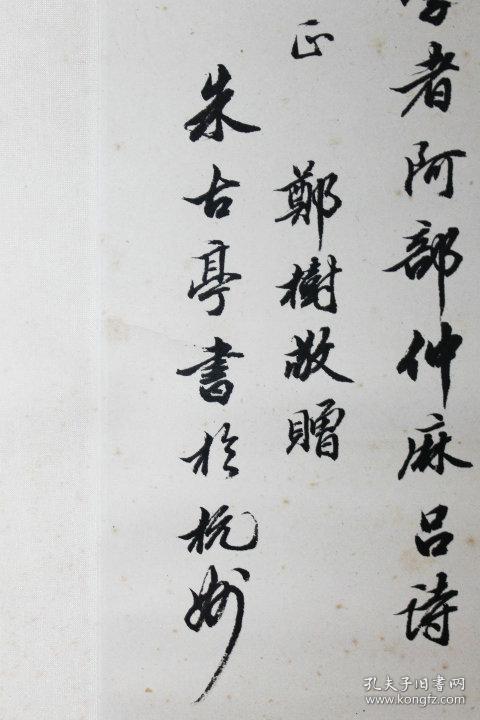 者阿部仲麻吕诗
正
鄭樹敬贈
朱古亭書於杭州
孔夫子旧书网
www.kongfz.com